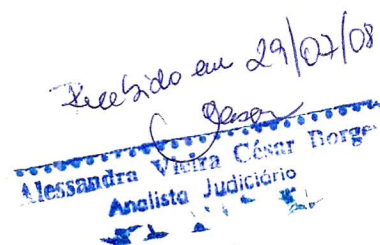 Recebido em 29/07/08
Alessandra Vieira César Borges
Analista Judiciário